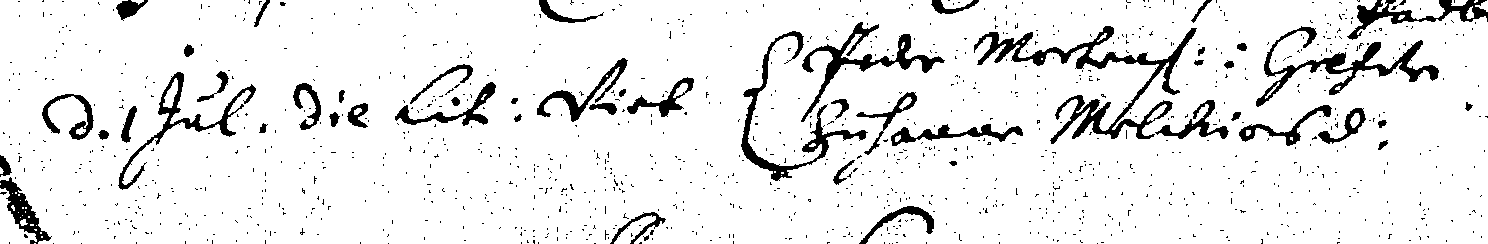 d. 1 Jul. die lit: Viet
Peder Mortens: : Grefste
Susanne Melchiors d: